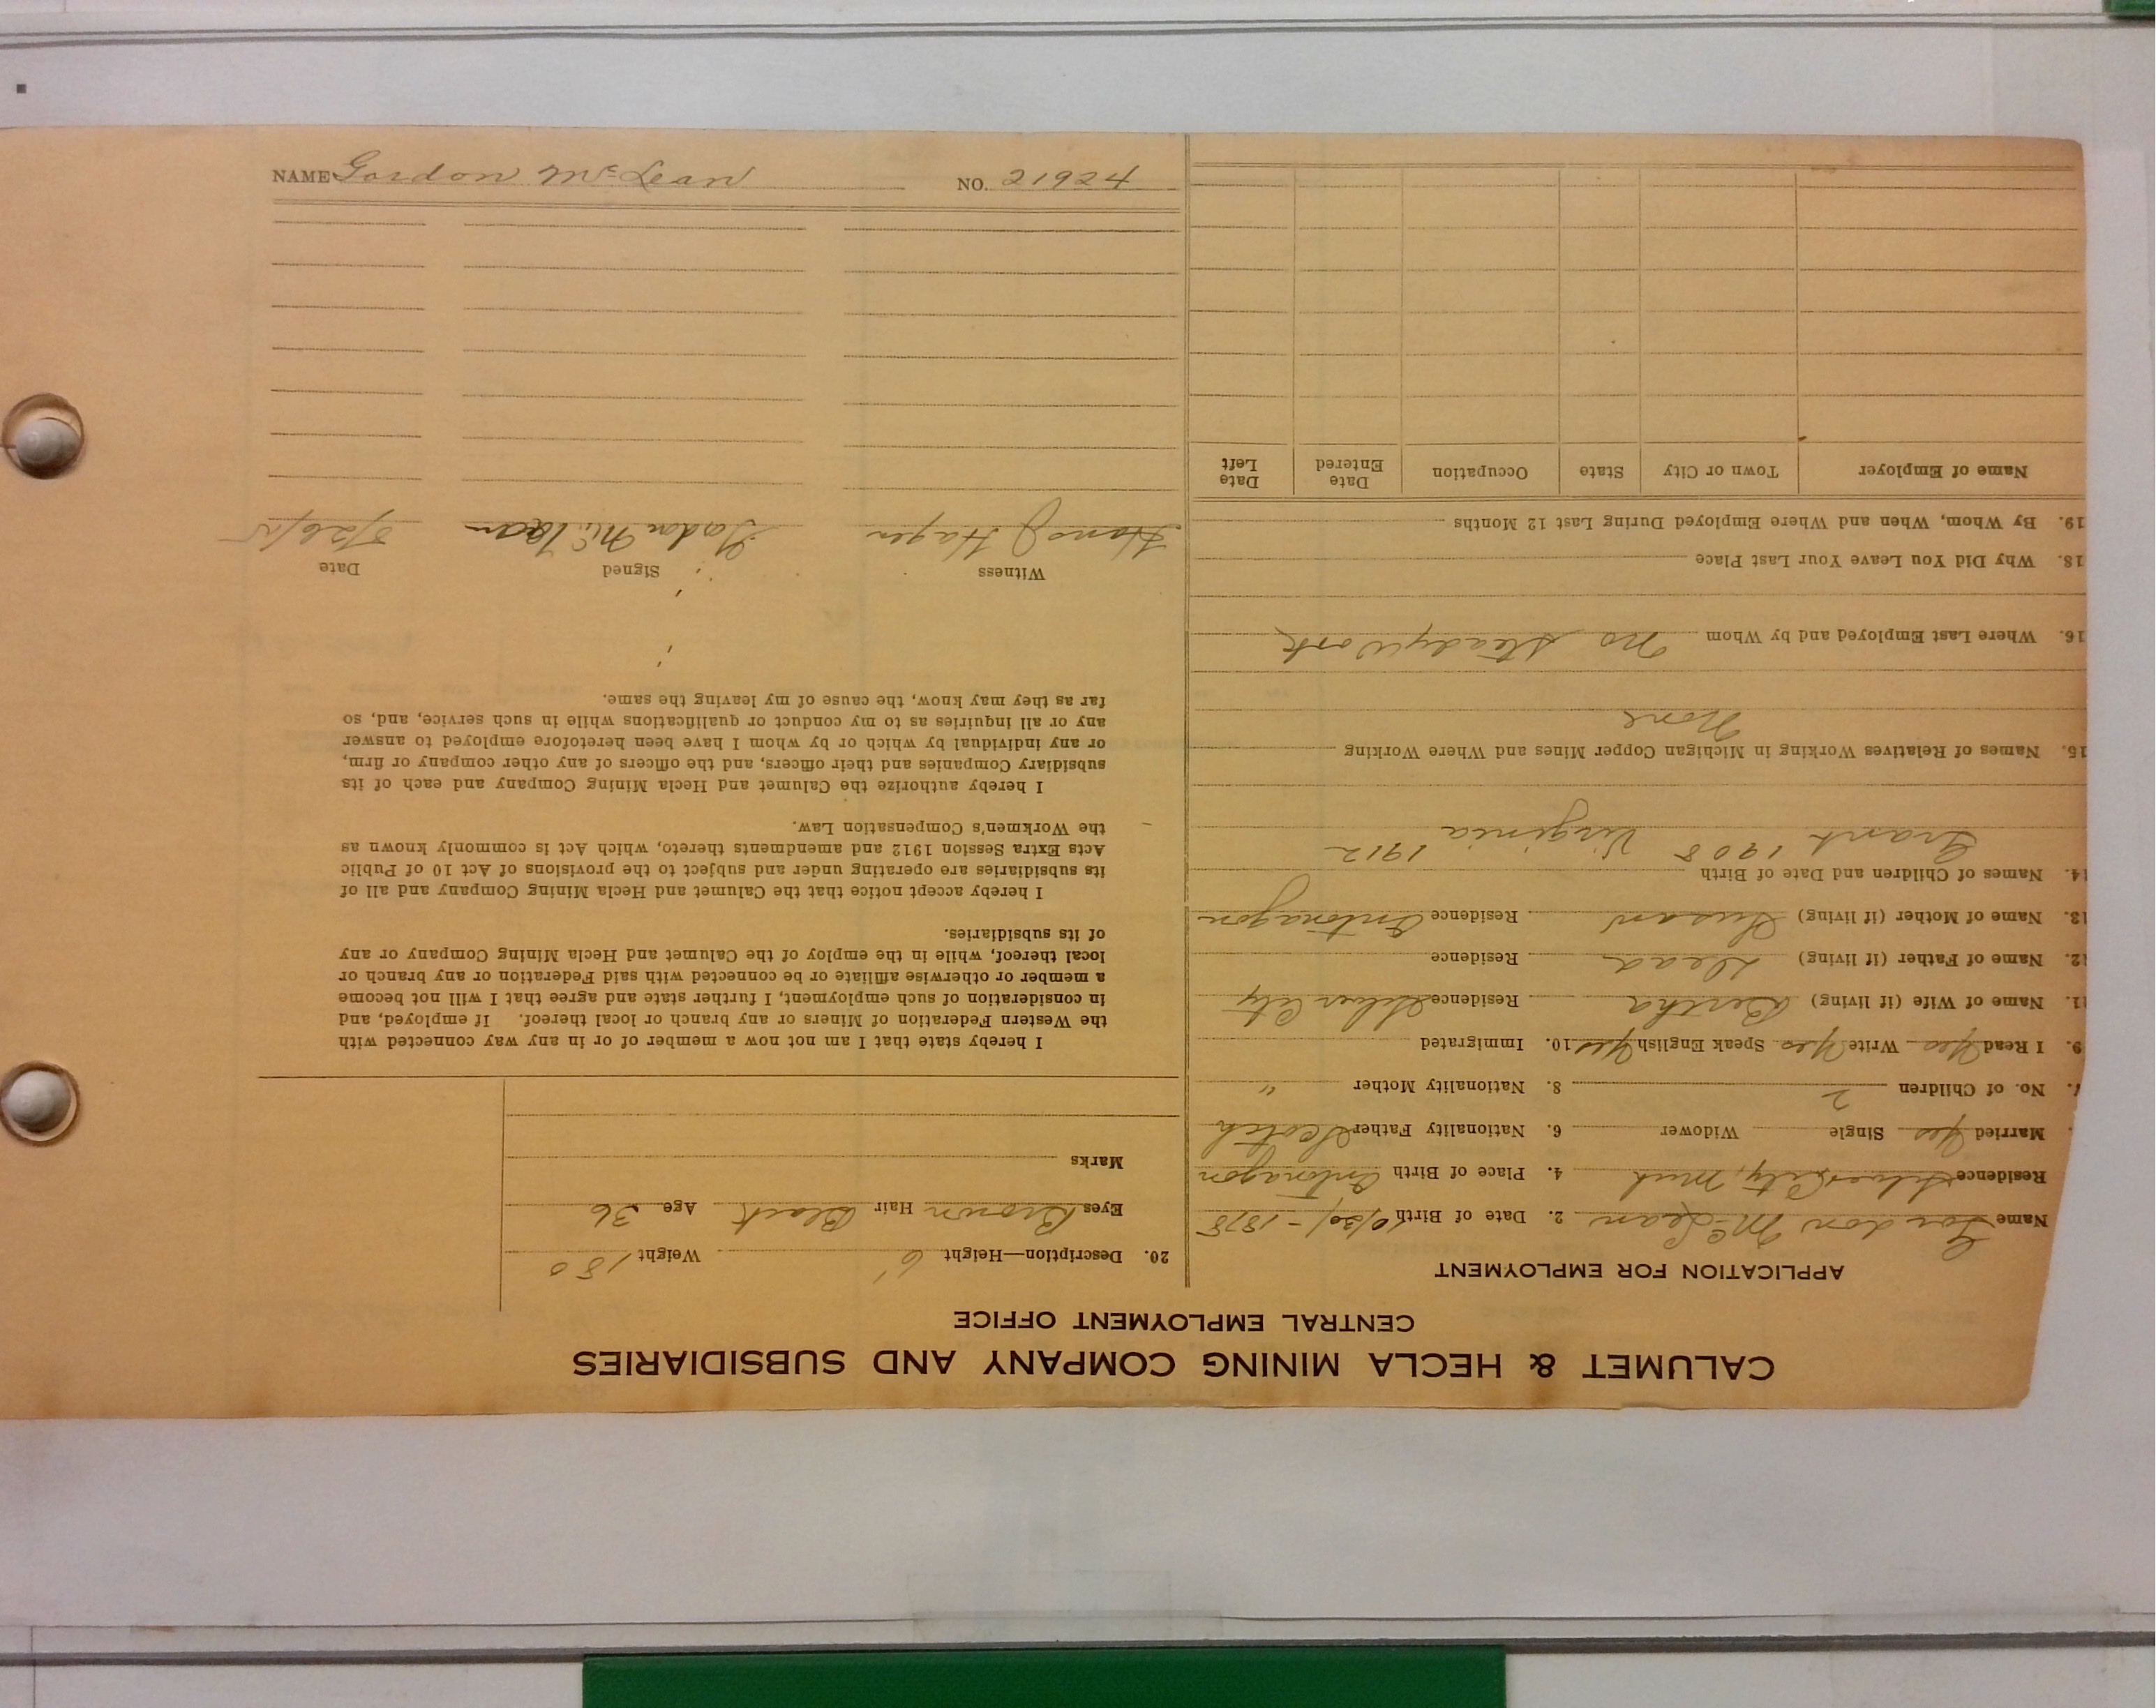 CALUMET & HECLA MINING COMPANY AND SUBSIDIARIES
CENTRAL EMPLOYMENT OFFICE
APPLICATION FOR EMPLOYMENT
Name Gordon McLean 2. Date of Birth 10/30/-1878
Residence Silver City, Mich 4. Place of Birth Ontonagon
Married Yes Single Widower 6. Nationality Father Scotch
7. No. of Children 2 8. Nationality Mother "
9. I Read Yes Write Yes Speak English Yes 10. Immigrated
11. Name of Wife (if living) Bertha Residence Silver City
12. Name of Father (if living) Dead Residence
13. Name of Mother (if living) Susan Residence Ontonagon
14. Names of Children and Date of Birth
Grant 1908 Virginia 1912
15. Names of Relatives Working in Michigan Copper Mines and Where Working
None
16. Where Last Employed and by Whom No steady work
18. Why Did You Leave Your Last Place
19. By Whom, When and Where Employed During Last 12 Months
Name of Employer Town or City State Occupation Date Entered Date Left
20. Description—Height 6' Weight 180
Eyes Brown Hair Black Age 36
Marks
I hereby state that I am not now a member of or in any way connected with
the Western Federation of Miners or any branch or local thereof. If employed, and
in consideration of such employment, I further state and agree that I will not become
a member or otherwise affiliate or be connected with said Federation or any branch or
local thereof, while in the employ of the Calumet and Hecla Mining Company or any
of its subsidiaries.
I hereby accept notice that the Calumet and Hecla Mining Company and all of
its subsidiaries are operating under and subject to the provisions of Act 10 of Public
Acts Extra Session 1912 and amendments thereto, which Act is commonly known as
the Workmen's Compensation Law.
I hereby authorize the Calumet and Hecla Mining Company and each of its
subsidiary Companies and their officers, and the officers of any other company or firm,
or any individual by which or by whom I have been heretofore employed to answer
any or all inquiries as to my conduct or qualifications while in such service, and, so
far as they may know, the cause of my leaving the same.
Witness Signed Date
Hagen Gordon McLean 5/26/15
NAME Gordon McLean NO. 21924